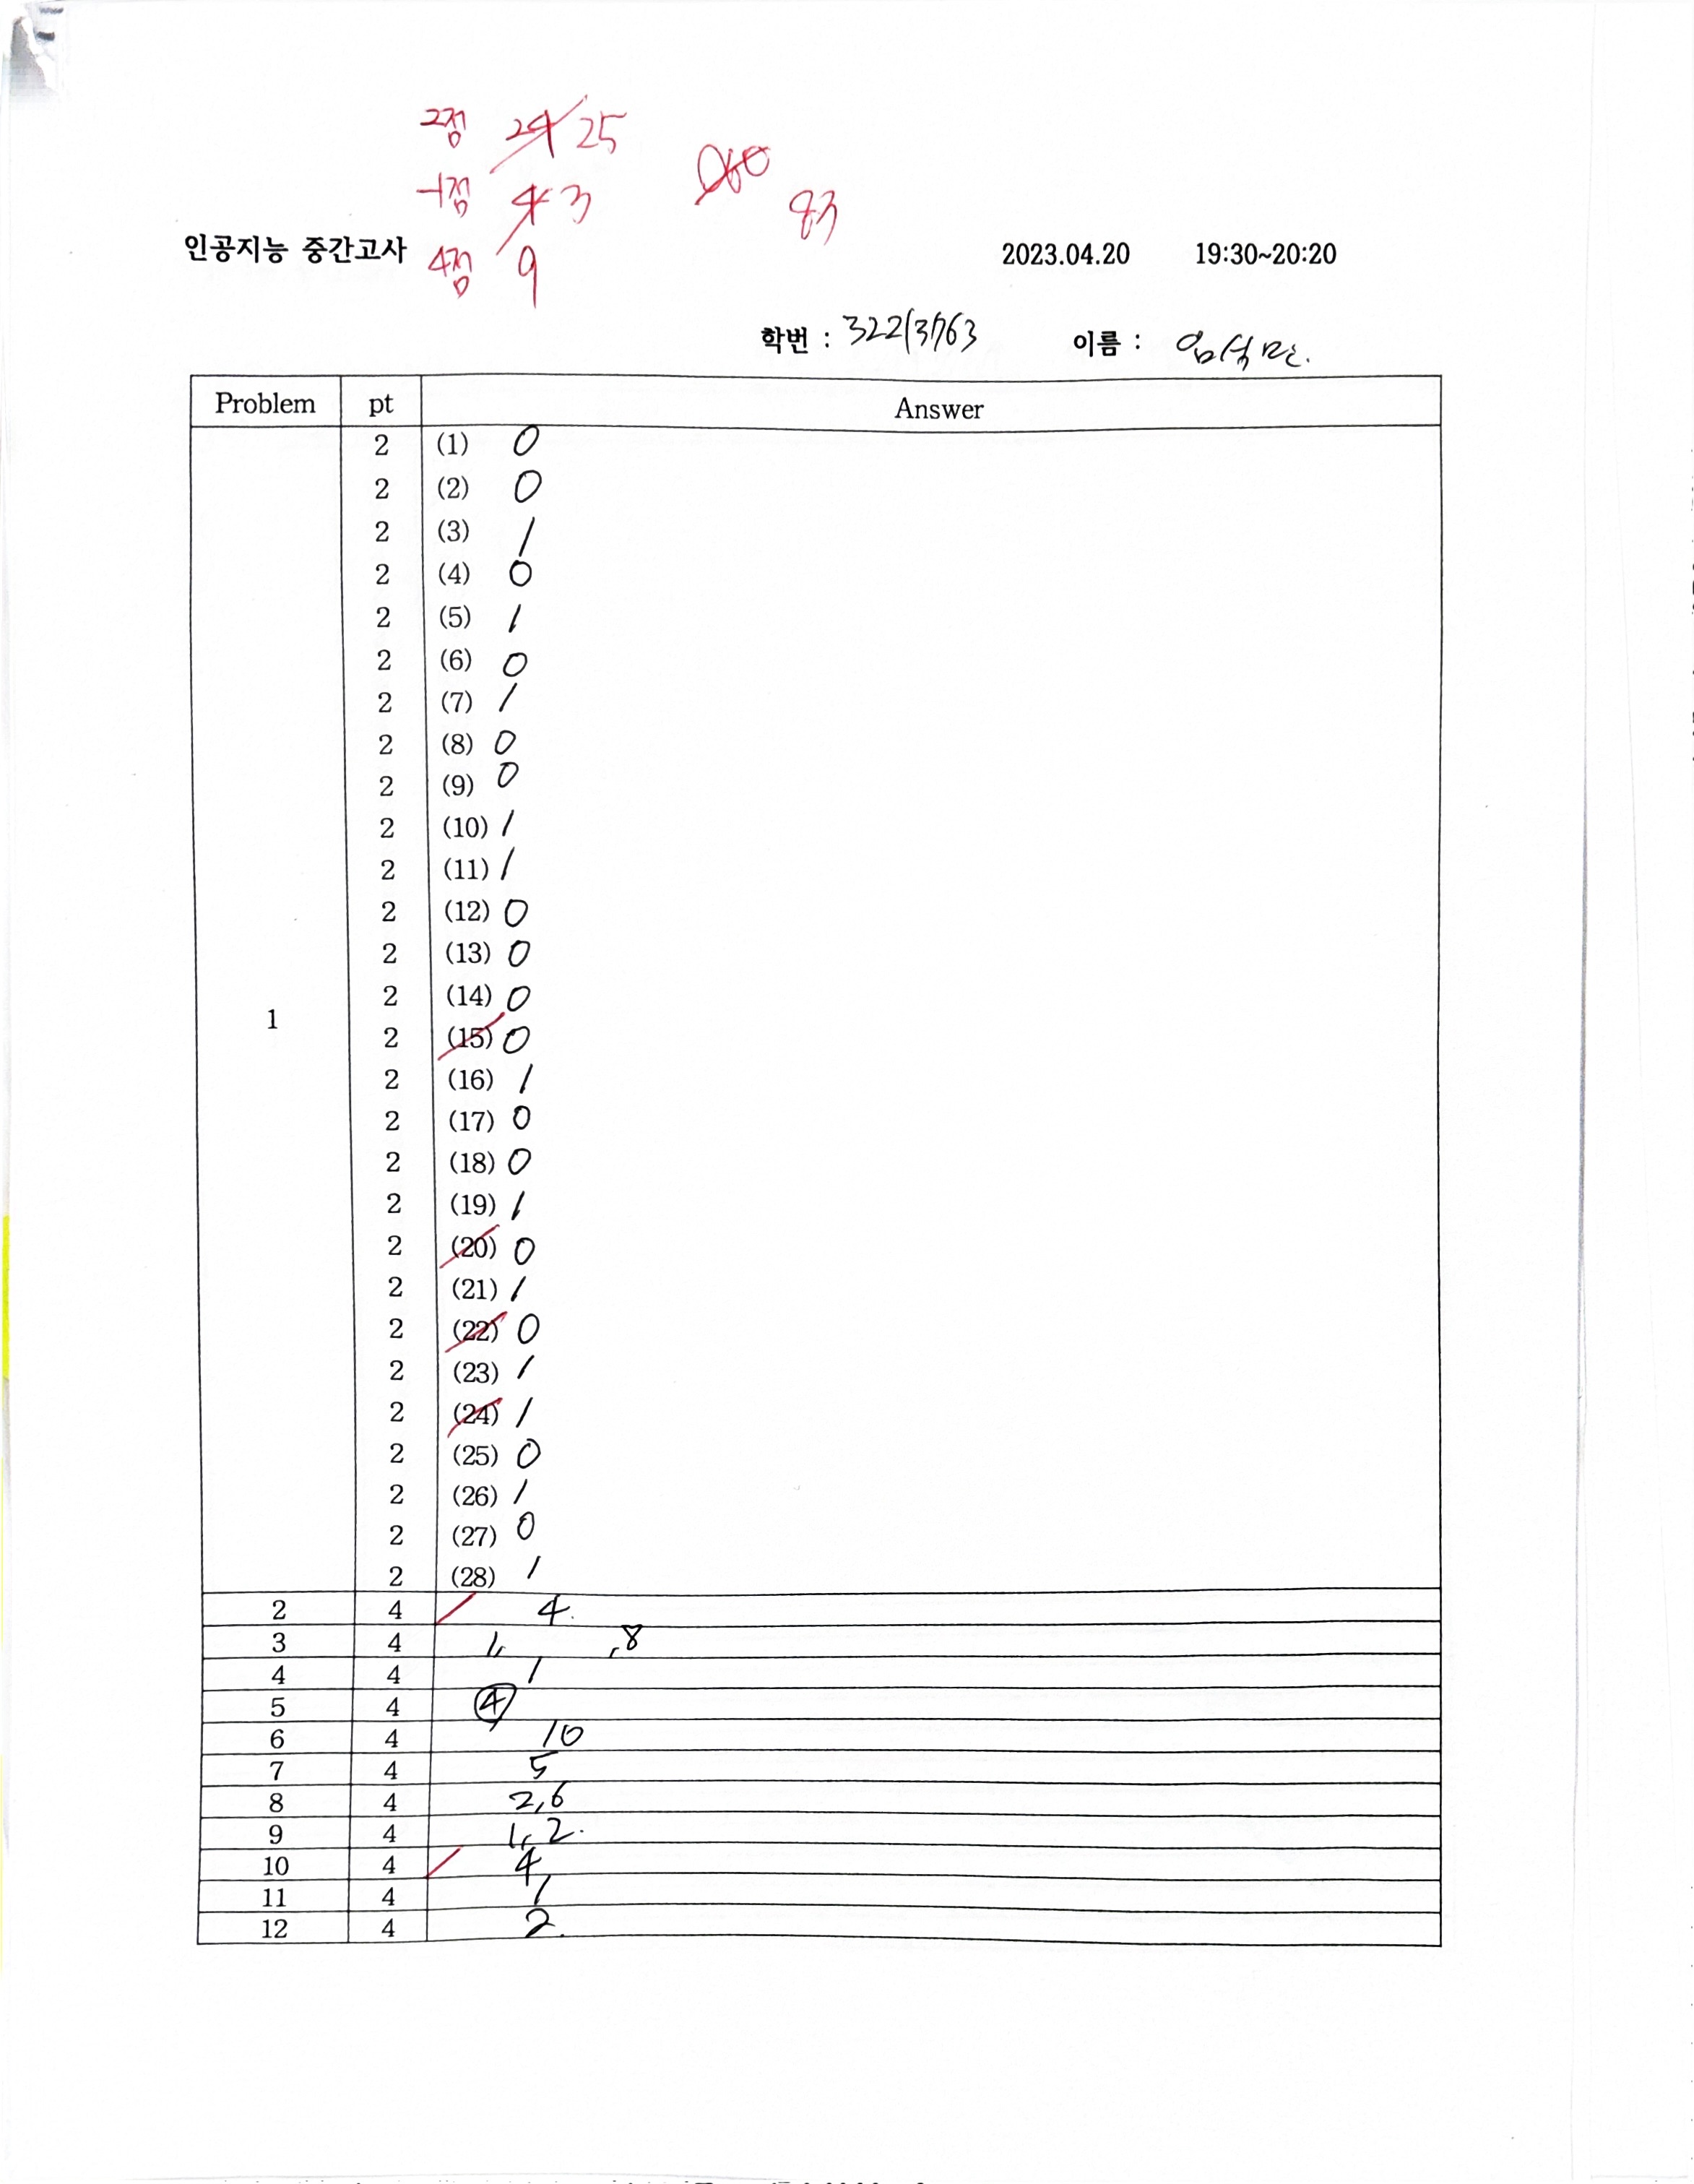 2점 24 25
-1점 4 3
83
인공지능 중간고사 4점 9 2023.04.20 19:30~20:20
학번 : 32213763 이름 : 임석민.
Problem pt Answer
2 (1) 0
2 (2) 0
2 (3) 1
2 (4) 0
2 (5) 1
2 (6) 0
2 (7) 1
2 (8) 0
2 (9) 0
2 (10) 1
2 (11) 1
2 (12) 0
2 (13) 0
2 (14) 0
1
2 (15) 0
2 (16) 1
2 (17) 0
2 (18) 0
2 (19) 1
2 (20) 0
2 (21) 1
2 (22) 0
2 (23) 1
2 (24) 1
2 (25) 0
2 (26) 1
2 (27) 0
2 (28) 1
2 4 4.
3 4 1, ,8
4 4 1
5 4 ④
6 4 10
7 4 5
8 4 2,6
9 4 1, 2.
10 4 4
11 4 1
12 4 2.